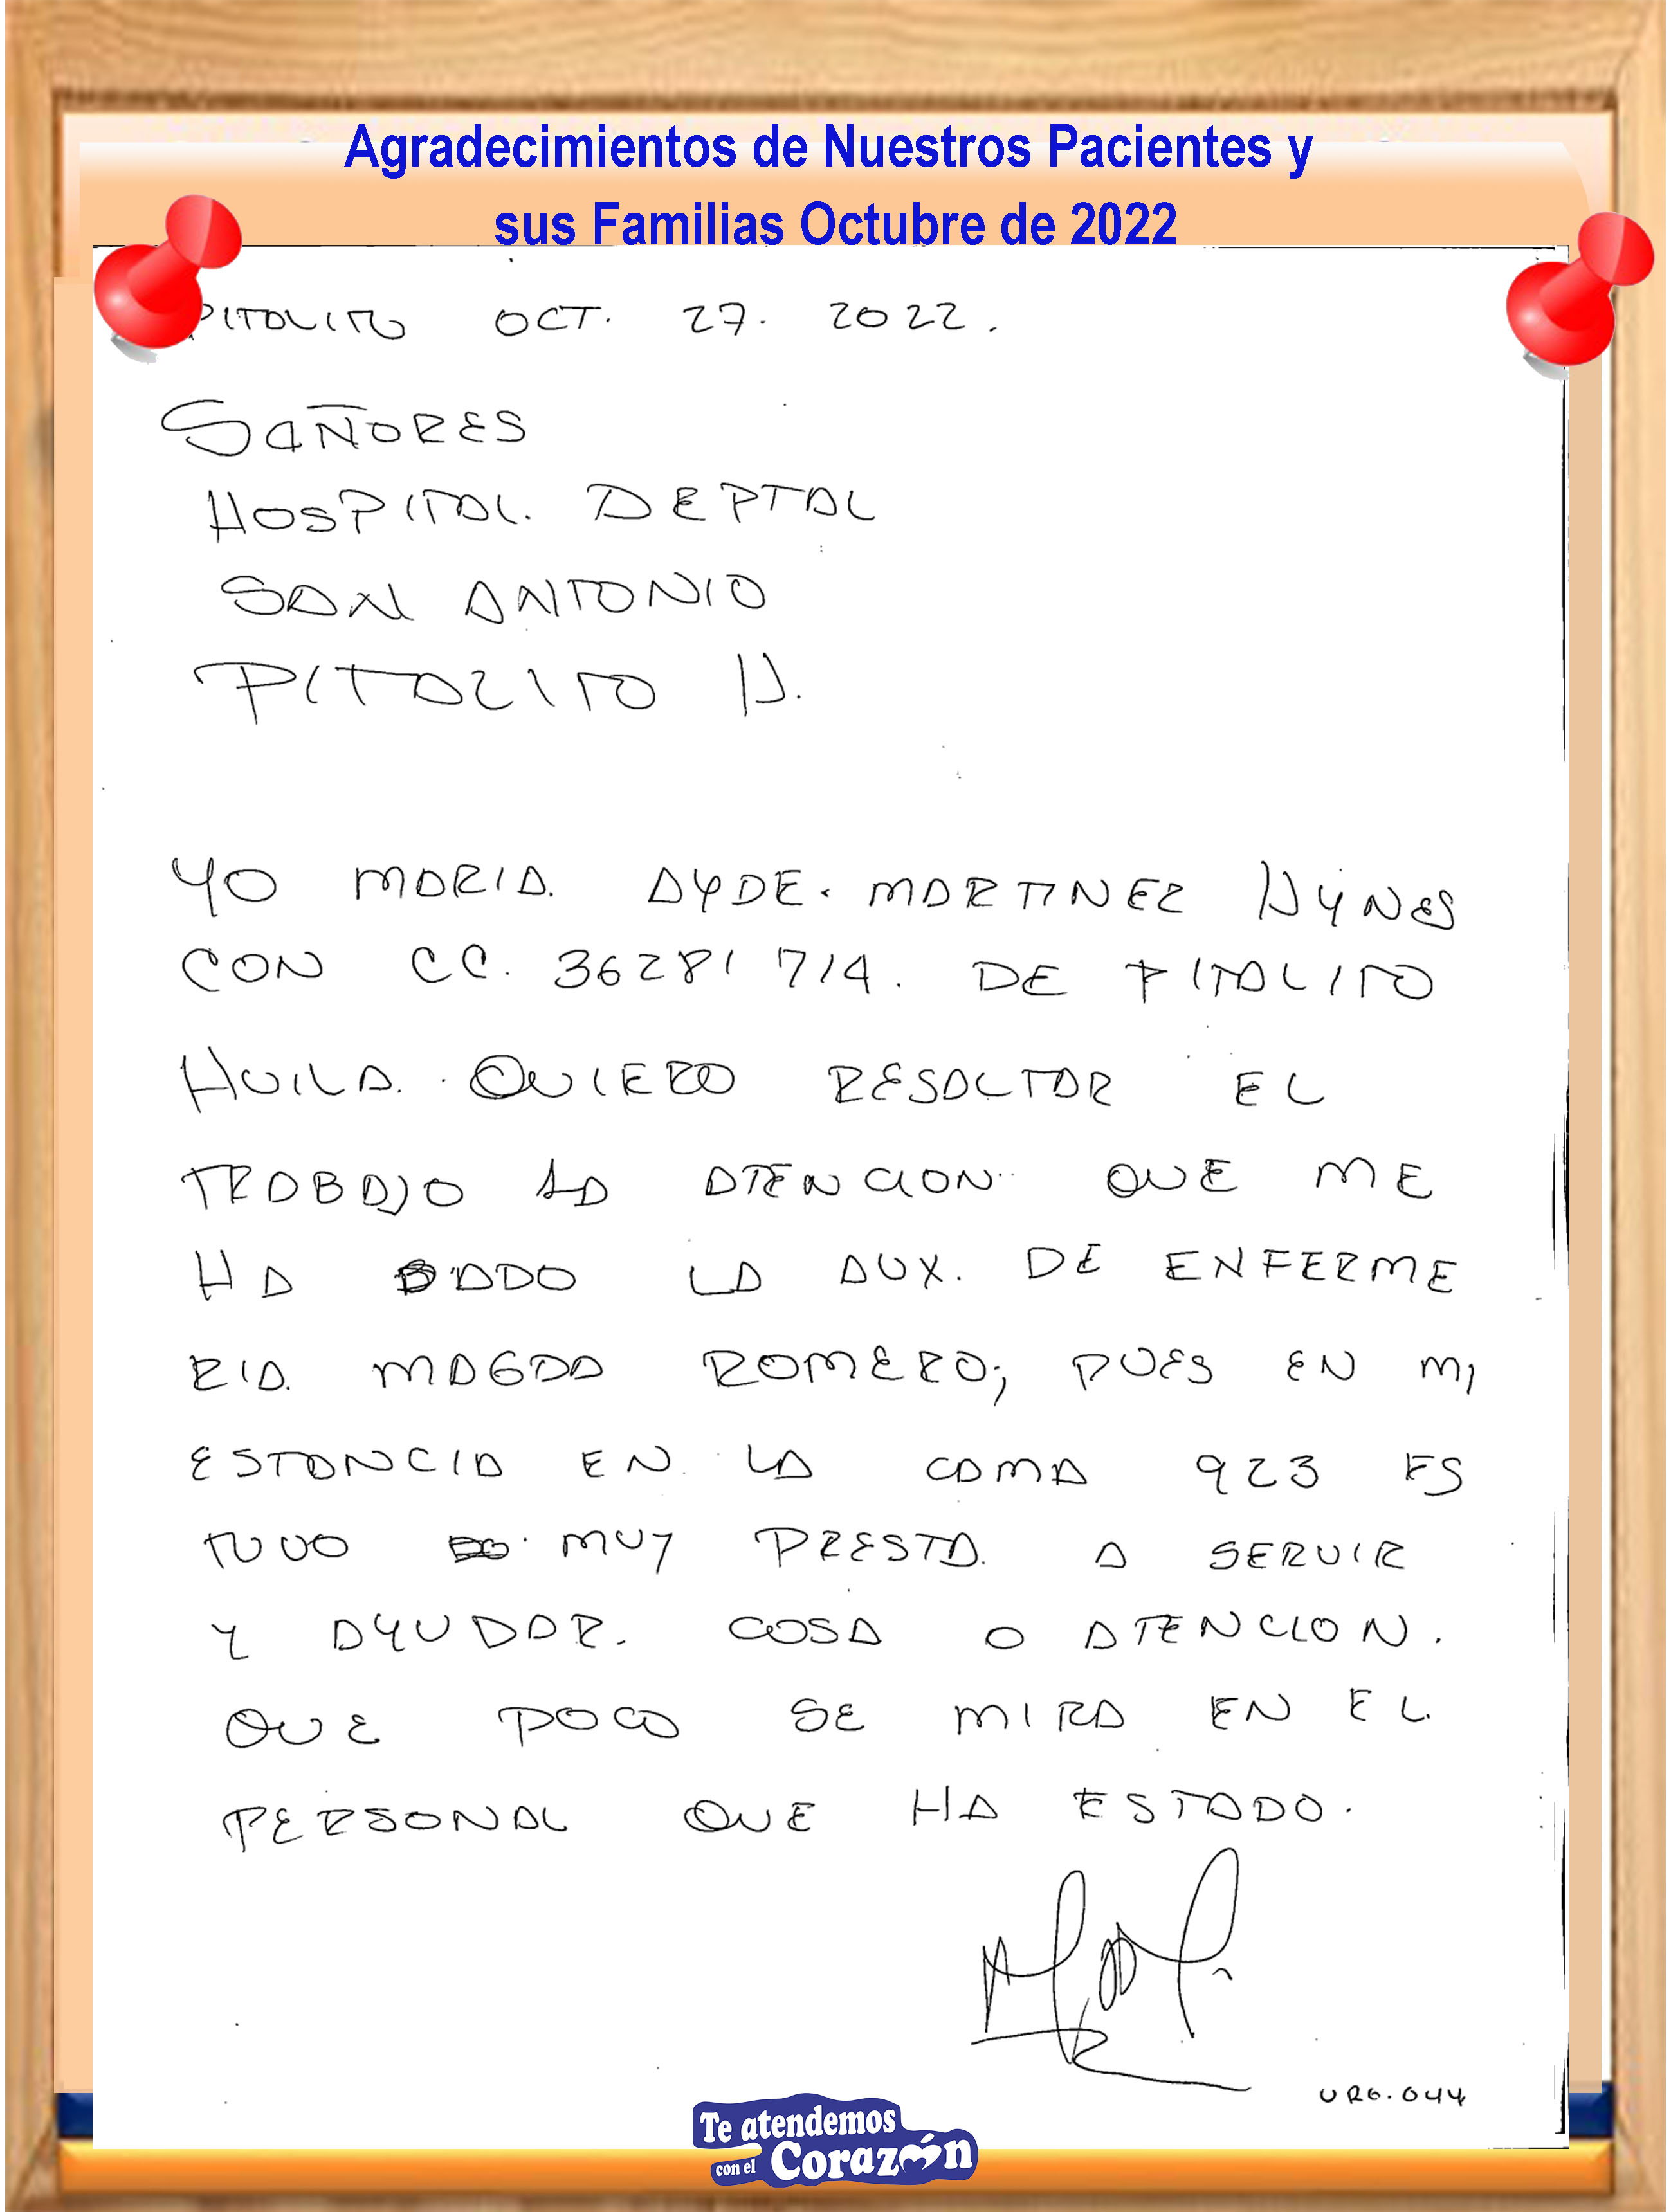 Agradecimientos de Nuestros Pacientes y
sus Familias Octubre de 2022
PITALITO OCT. 27. 2022.
SAÑORES
HOSPITAL. DEPTAL
SAN ANTONIO
PITALITO H.
YO MARIA. AYDE. MARTINEZ HYNES
CON CC. 36281714. DE PITALITO
HUILA. QUIERO RESALTAR EL
TRABAJO LA ATENCION QUE ME
HA DADO LA AUX. DE ENFERME
RIA. MAGDA ROMERO; PUES EN MI
ESTANCIA EN LA CAMA 923 ES
TUVO MUY PRESTA. A SERVIR
Y AYUDAR. COSA O ATENCION.
QUE POCO SE MIRA EN EL.
PERSONAL QUE HA ESTADO.
URG.044
Te atendemos
con el Corazón